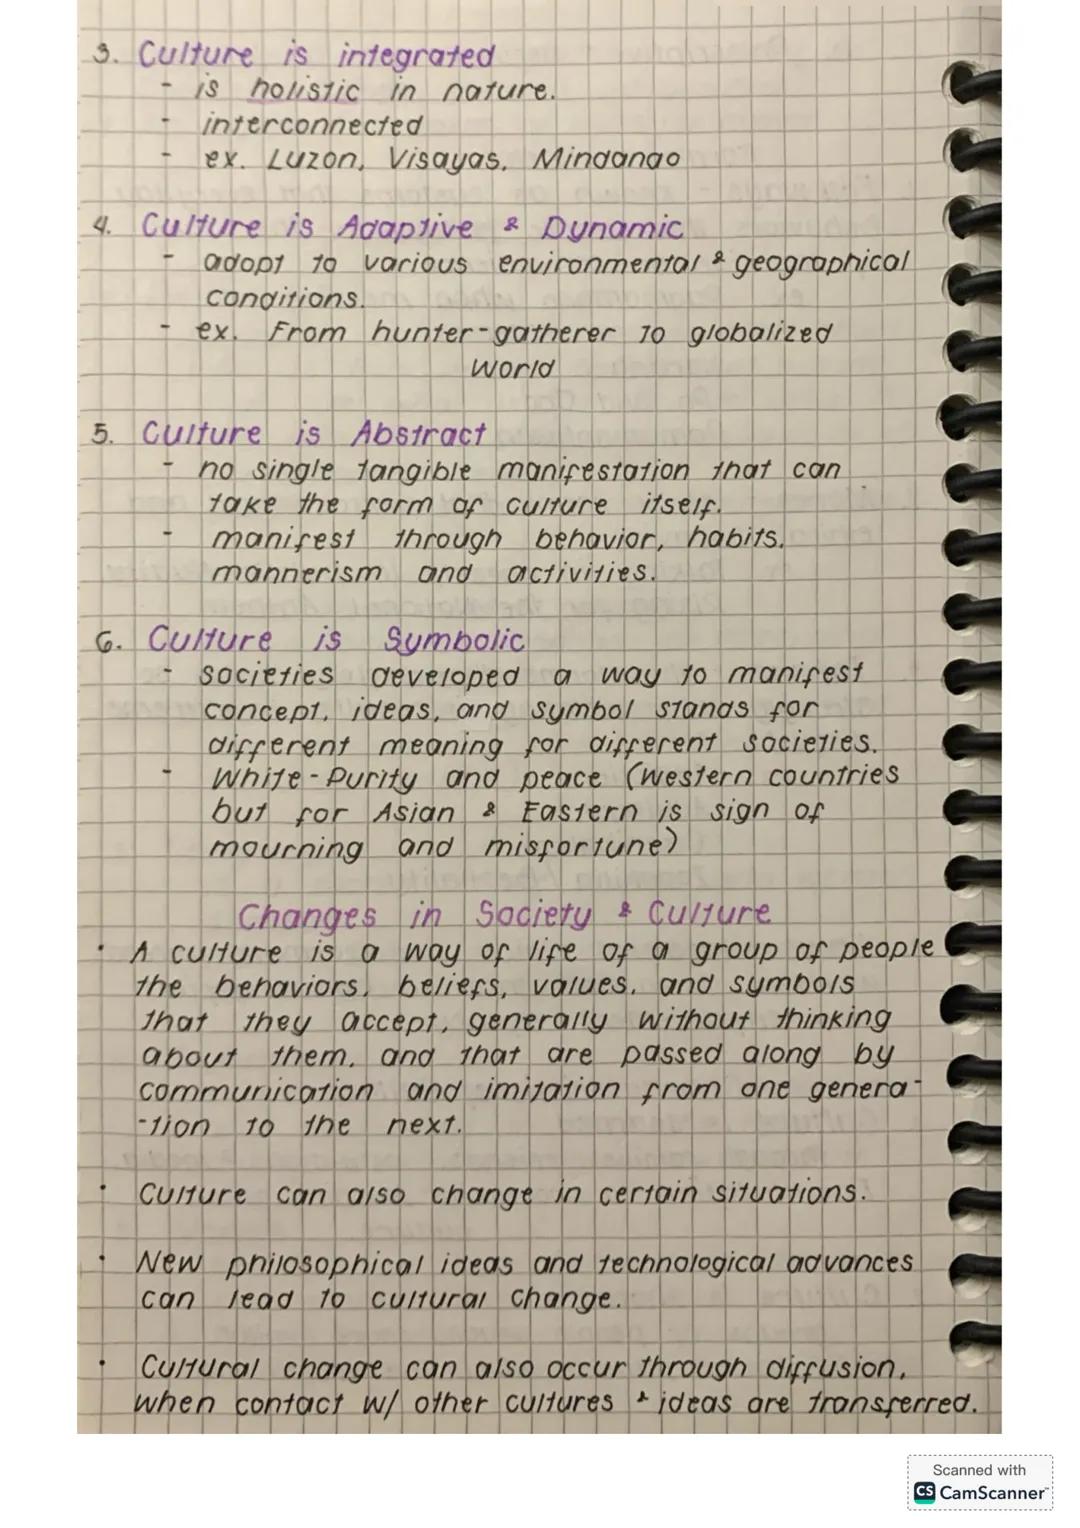 3. Culture is integrated
- is holistic in nature.
- interconnected
- ex. Luzon, Visayas, Mindanao
4. Culture is Adaptive & Dynamic
- adopt to various environmental & geographical
conditions.
- ex. From hunter-gatherer to globalized
World
5. Culture is Abstract
- no single tangible manifestation that can
take the form of culture itself.
- manifest through behavior, habits,
mannerism and activities.
6. Culture is Symbolic
- societies developed a way to manifest
concept, ideas, and symbol stands for
different meaning for different societies.
- White - Purity and peace (Western countries
but for Asian & Eastern is sign of
mourning and misfortune)
Changes in Society & Culture
• A culture is a way of life of a group of people
the behaviors, beliefs, values, and symbols
that they accept, generally without thinking
about them, and that are passed along by
communication and imitation from one genera-
-tion to the next.
• Culture can also change in certain situations.
• New philosophical ideas and technological advances
can lead to cultural change.
• Cultural change can also occur through diffusion,
when contact w/ other cultures & ideas are transferred.
Scanned with
CS CamScanner